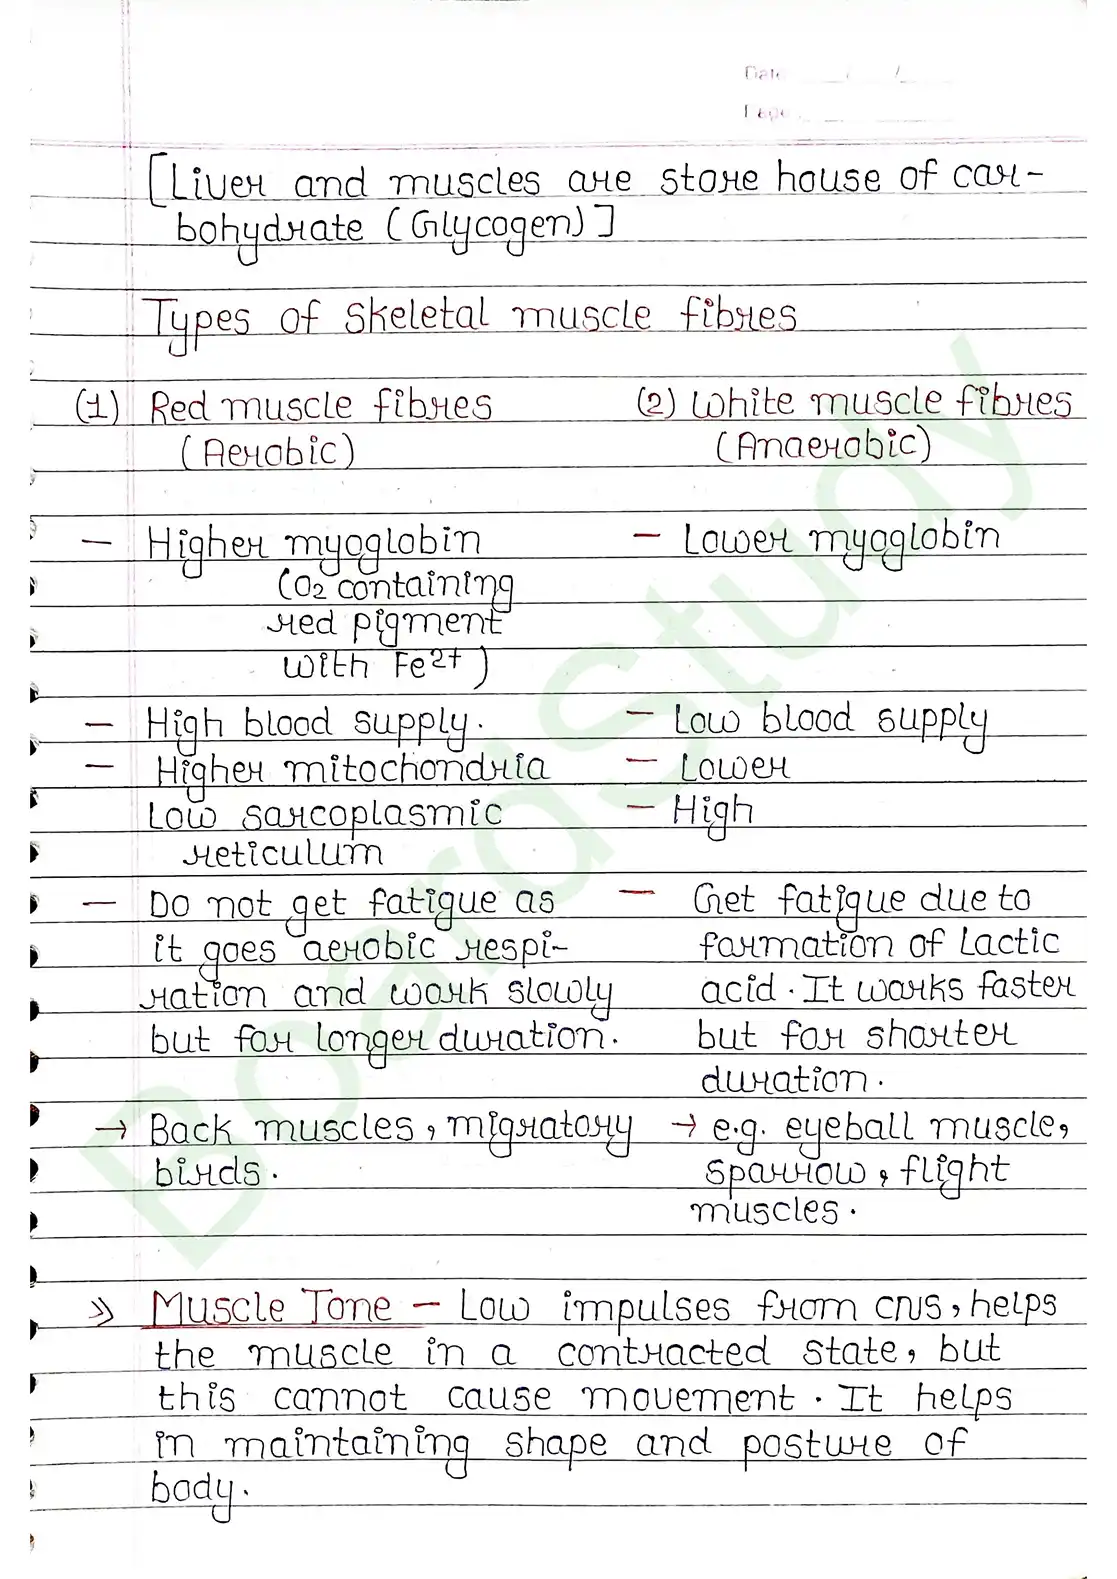 Date ___/___/___
Page
[Liver and muscles are store house of car-
bohydrate (Glycogen)]
Types of Skeletal muscle fibres
(1) Red muscle fibres (2) White muscle fibres
(Aerobic) (Anaerobic)
— Higher myoglobin — Lower myoglobin
(O2 containing
red pigment
with Fe2+)
— High blood supply. — Low blood supply
— Higher mitochondria — Lower
Low sarcoplasmic — High
reticulum
— Do not get fatigue as — Get fatigue due to
it goes aerobic respi- formation of Lactic
ration and work slowly acid. It works faster
but for longer duration. but for shorter
duration.
→ Back muscles, migratory → e.g. eyeball muscle,
birds. sparrow, flight
muscles.
» Muscle Tone — Low impulses from CNS, helps
the muscle in a contracted state, but
this cannot cause movement. It helps
in maintaining shape and posture of
body.
BoardStudy